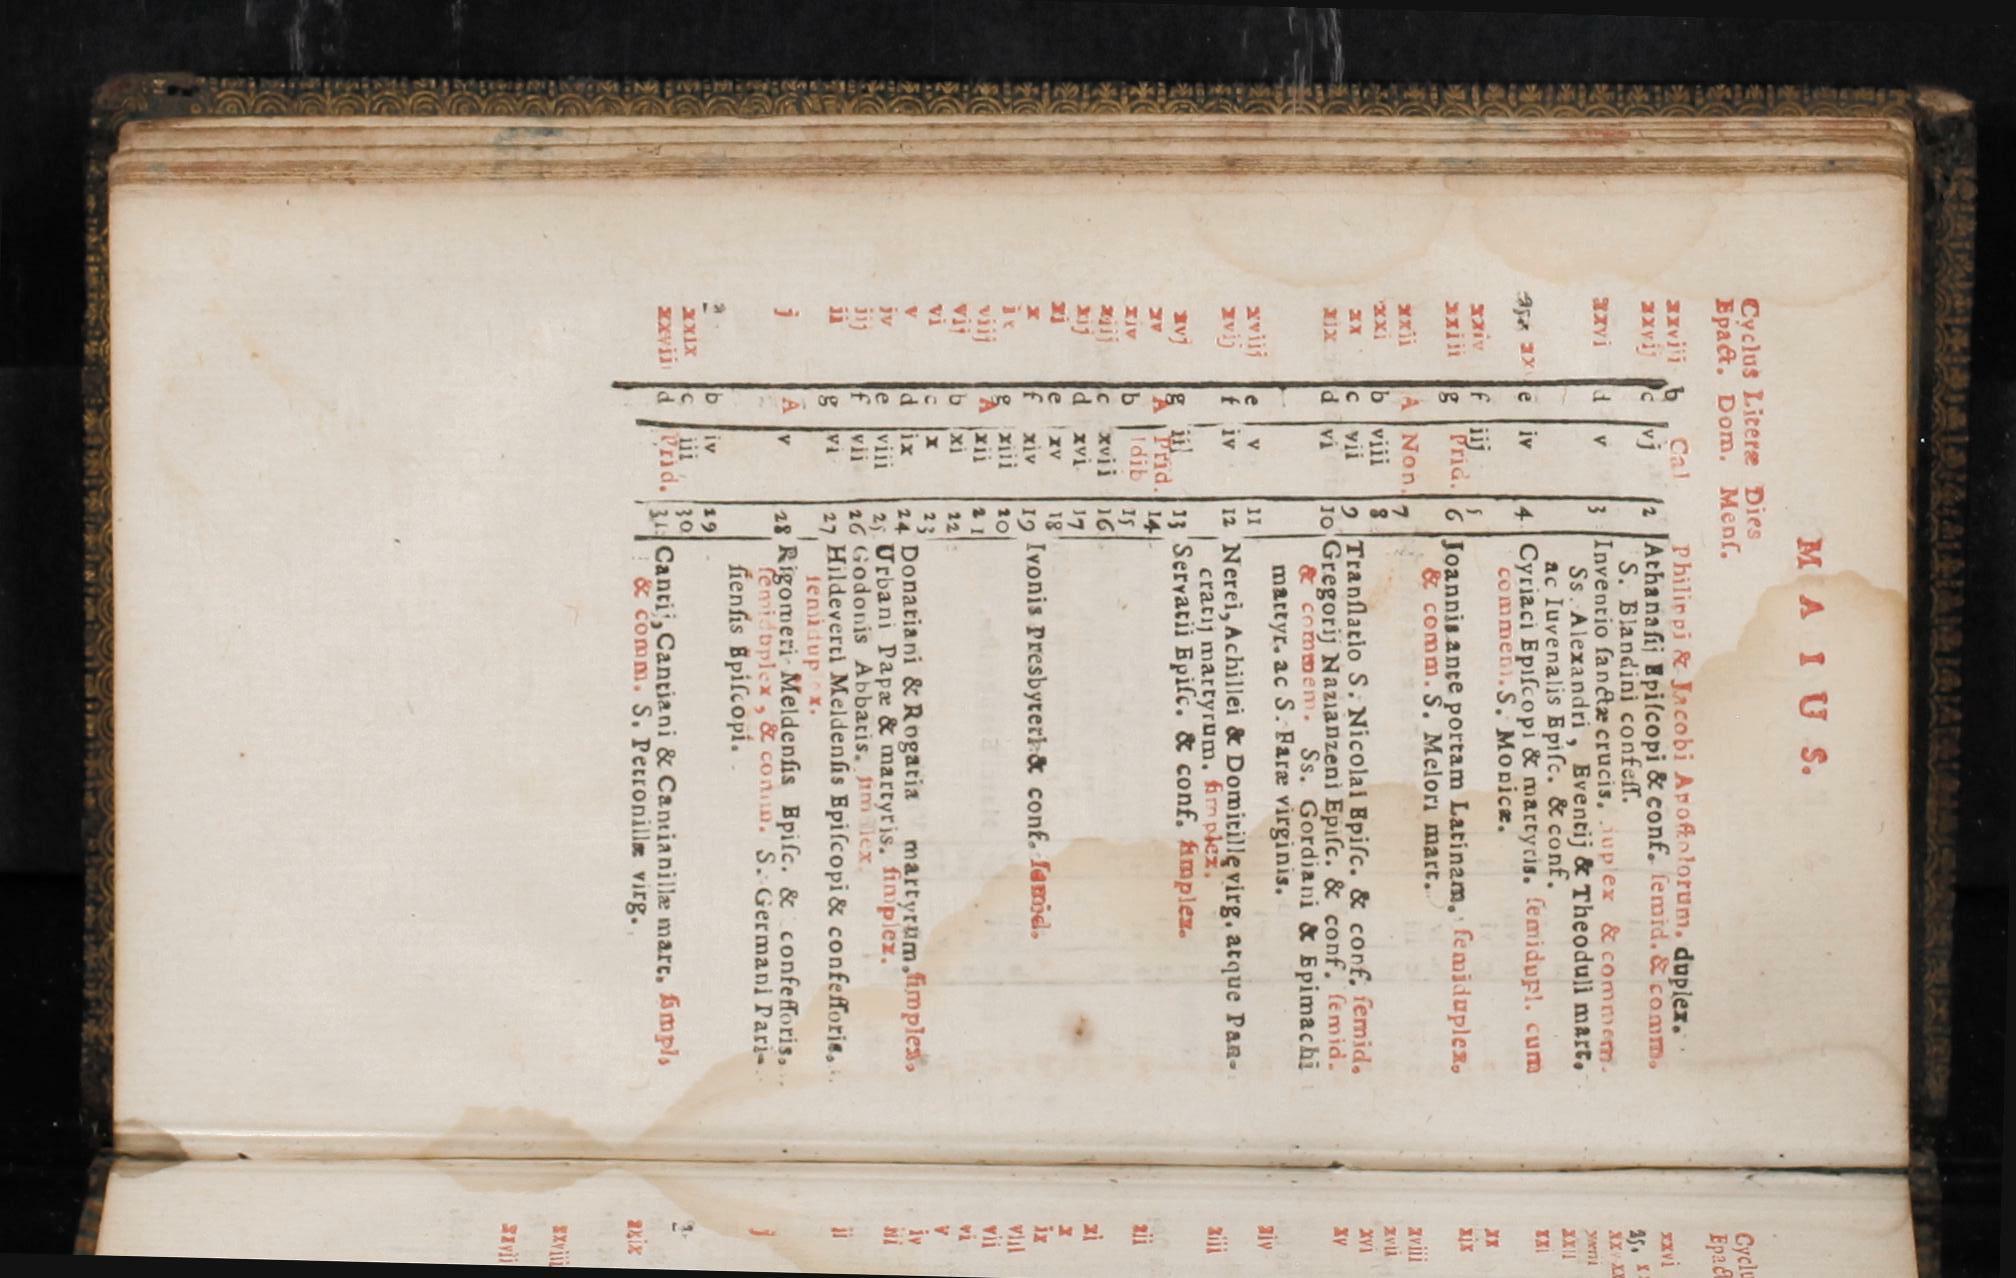 M A I U S.
Cyclus Literæ Dies
Epact. Dom. Mens.
xxviii b Cal. Philippi & Jacobi Apostolorum. duplex.
xxvij c vj 2 Athanasij Episcopi & conf. semid. & comm.
S. Blandini confess.
xxvi d v 3 Inventio sanctæ crucis. duplex & commem.
Ss. Alexandri, Eventij & Theoduli mart.
ac Iuvenalis Episc. & conf.
e iv 4 Cyriaci Episcopi & martyris. semidupl. cum
commem. S. Monicæ.
xxiv f iij 5
xxiii g Prid. 6 Joannis ante portam Latinam. semiduplex.
& comm. S. Melori mart.
xxii A Non. 7
xxi b viii 8
xx c vii 9 Translatio S. Nicolai Episc. & conf. semid.
xix d vi 10 Gregorij Nazianzeni Episc. & conf. semid.
& commem. Ss. Gordiani & Epimachi
martyr. ac S. Faræ virginis.
xviij e v 11
xvij f iv 12 Nerei, Achillei & Domitillę virg. atque Pan-
cratij martyrum. simplex.
xvj g iij 13 Servatii Episc. & conf. simplex.
xv A Prid. 14
xiv b Idib 15
xiij c xvii 16
xij d xvi 17
xj e xv 18
x f xiv 19 Ivonis Presbyteri & conf. semid.
ix g xiii 20
viij A xii 21
vij b xi 22
vi c x 23
v d ix 24 Donatiani & Rogatia martyrum. simplex.
iv e viii 25 Urbani Papæ & martyris. simplex.
iij f vii 26 Godonis Abbatis. simplex.
ii g vi 27 Hildeverti Meldensis Episcopi & confessoris.
semiduplex.
j A v 28 Rigomeri Meldensis Episc. & confessoris.
semiduplex, & comm. S. Germani Pari-
siensis Episcopi.
b iv 29
xxix c iii 30
xxviii d Prid. 31 Canti, Cantiani & Cantianillæ mart. simpl.
& comm. S. Petronillæ virg.
Cyclu
Epact
xxvi
xxii
xxi
xx
xix
xviii
xvii
xvi
xv
xiv
xiii
xii
xi
x
ix
viii
vii
vi
v
iv
iii
ii
j
xxix
xxviii
xxvij